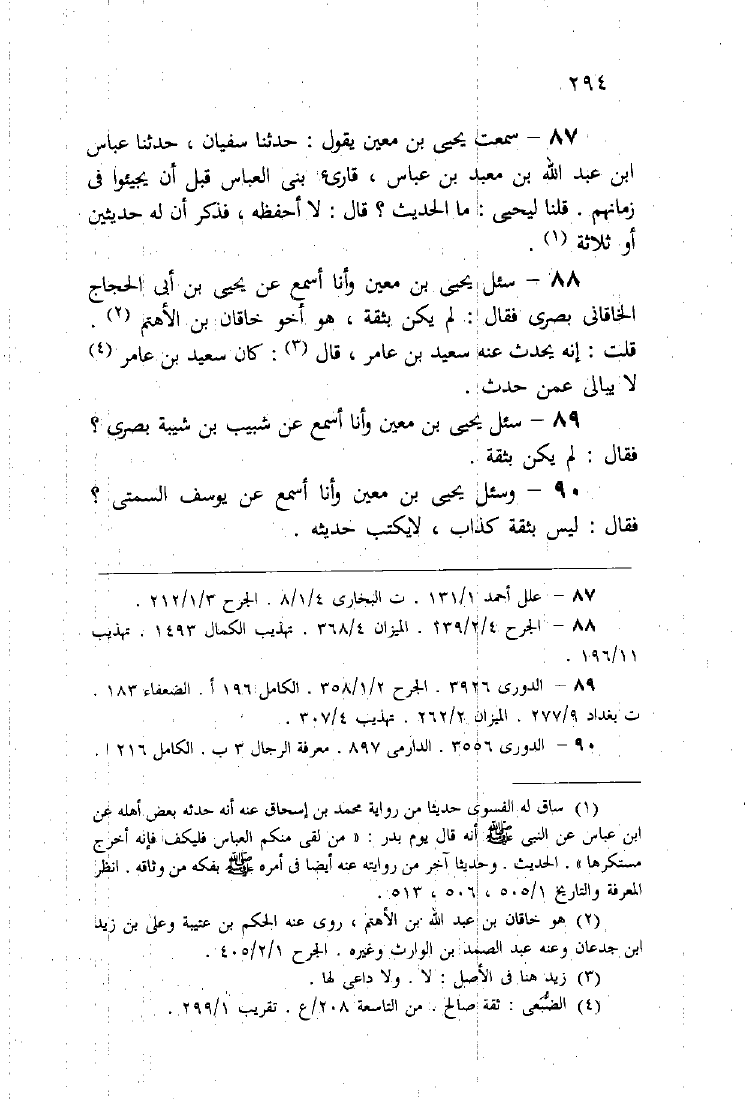 ٢٩٤
٨٧ – سمعت يحيى بن معين يقول : حدثنا سفيان ، حدثنا عباس
ابن عبد الله بن معبد بن عباس ، قارئ بنى العباس قبل أن يجيئوا فى
زمانهم . قلنا ليحيى : ما الحديث ؟ قال : لا أحفظه ، فذكر أن له حديثين
أو ثلاثة (١) .
٨٨ – سئل يحيى بن معين وأنا أسمع عن يحيى بن أبى الحجاج
الخاقانى بصرى فقال : لم يكن بثقة ، هو أخو خاقان بن الأهتم (٢) .
قلت : إنه يحدث عنه سعيد بن عامر ، قال (٣) : كان سعيد بن عامر (٤)
لا يبالى عمن حدث .
٨٩ – سئل يحيى بن معين وأنا أسمع عن شبيب بن شيبة بصرى ؟
فقال : لم يكن بثقة .
٩٠ – وسئل يحيى بن معين وأنا أسمع عن يوسف السمتى ؟
فقال : ليس بثقة كذاب ، لايكتب حديثه .
٨٧ – علل أحمد ١٣١/١ . ت البخارى ٨/١/٤ . الجرح ٢١٢/١/٣ .
٨٨ – الجرح ١٣٩/٢/٤ . الميزان ٣٦٨/٤ . تهذيب الكمال ١٤٩٣ . تهذيب
١٩٦/١١ .
٨٩ – الدورى ٣٩٢٦ . الجرح ٣٥٨/١/٢ . الكامل ١٩٦ أ . الضعفاء ١٨٣ .
ت بغداد ٢٧٧/٩ . الميزان ٢٦٢/٢ . تهذيب ٣٠٧/٤ .
٩٠ – الدورى ٣٥٥٦ . الدارمى ٨٩٧ . معرفة الرجال ٣ ب . الكامل ٢١٦ أ .
(١) ساق له الفسوى حديثا من رواية محمد بن إسحاق عنه أنه حدثه بعض أهله عن
ابن عباس عن النبى ﷺ أنه قال يوم بدر : « من لقى منكم العباس فليكف فإنه أخرج
مستكرها » . الحديث . وحديثا آخر من روايته عنه أيضا فى أمره ﷺ بفكه من وثاقه . انظر
المعرفة والتاريخ ٥٠٥/١ ، ٥٠٦ ، ٥١٣ .
(٢) هو خاقان بن عبد الله بن الأهتم ، روى عنه الحكم بن عتيبة وعلى بن زيد
ابن جدعان وعنه عبد الصمد بن الوارث وغيره . الجرح ٤٠٥/٢/١ .
(٣) زيد هنا فى الأصل : لا . ولا داعى لها .
(٤) الضُبَعى : ثقة صالح . من التاسعة ٢٠٨/ع . تقريب ٢٩٩/١ .